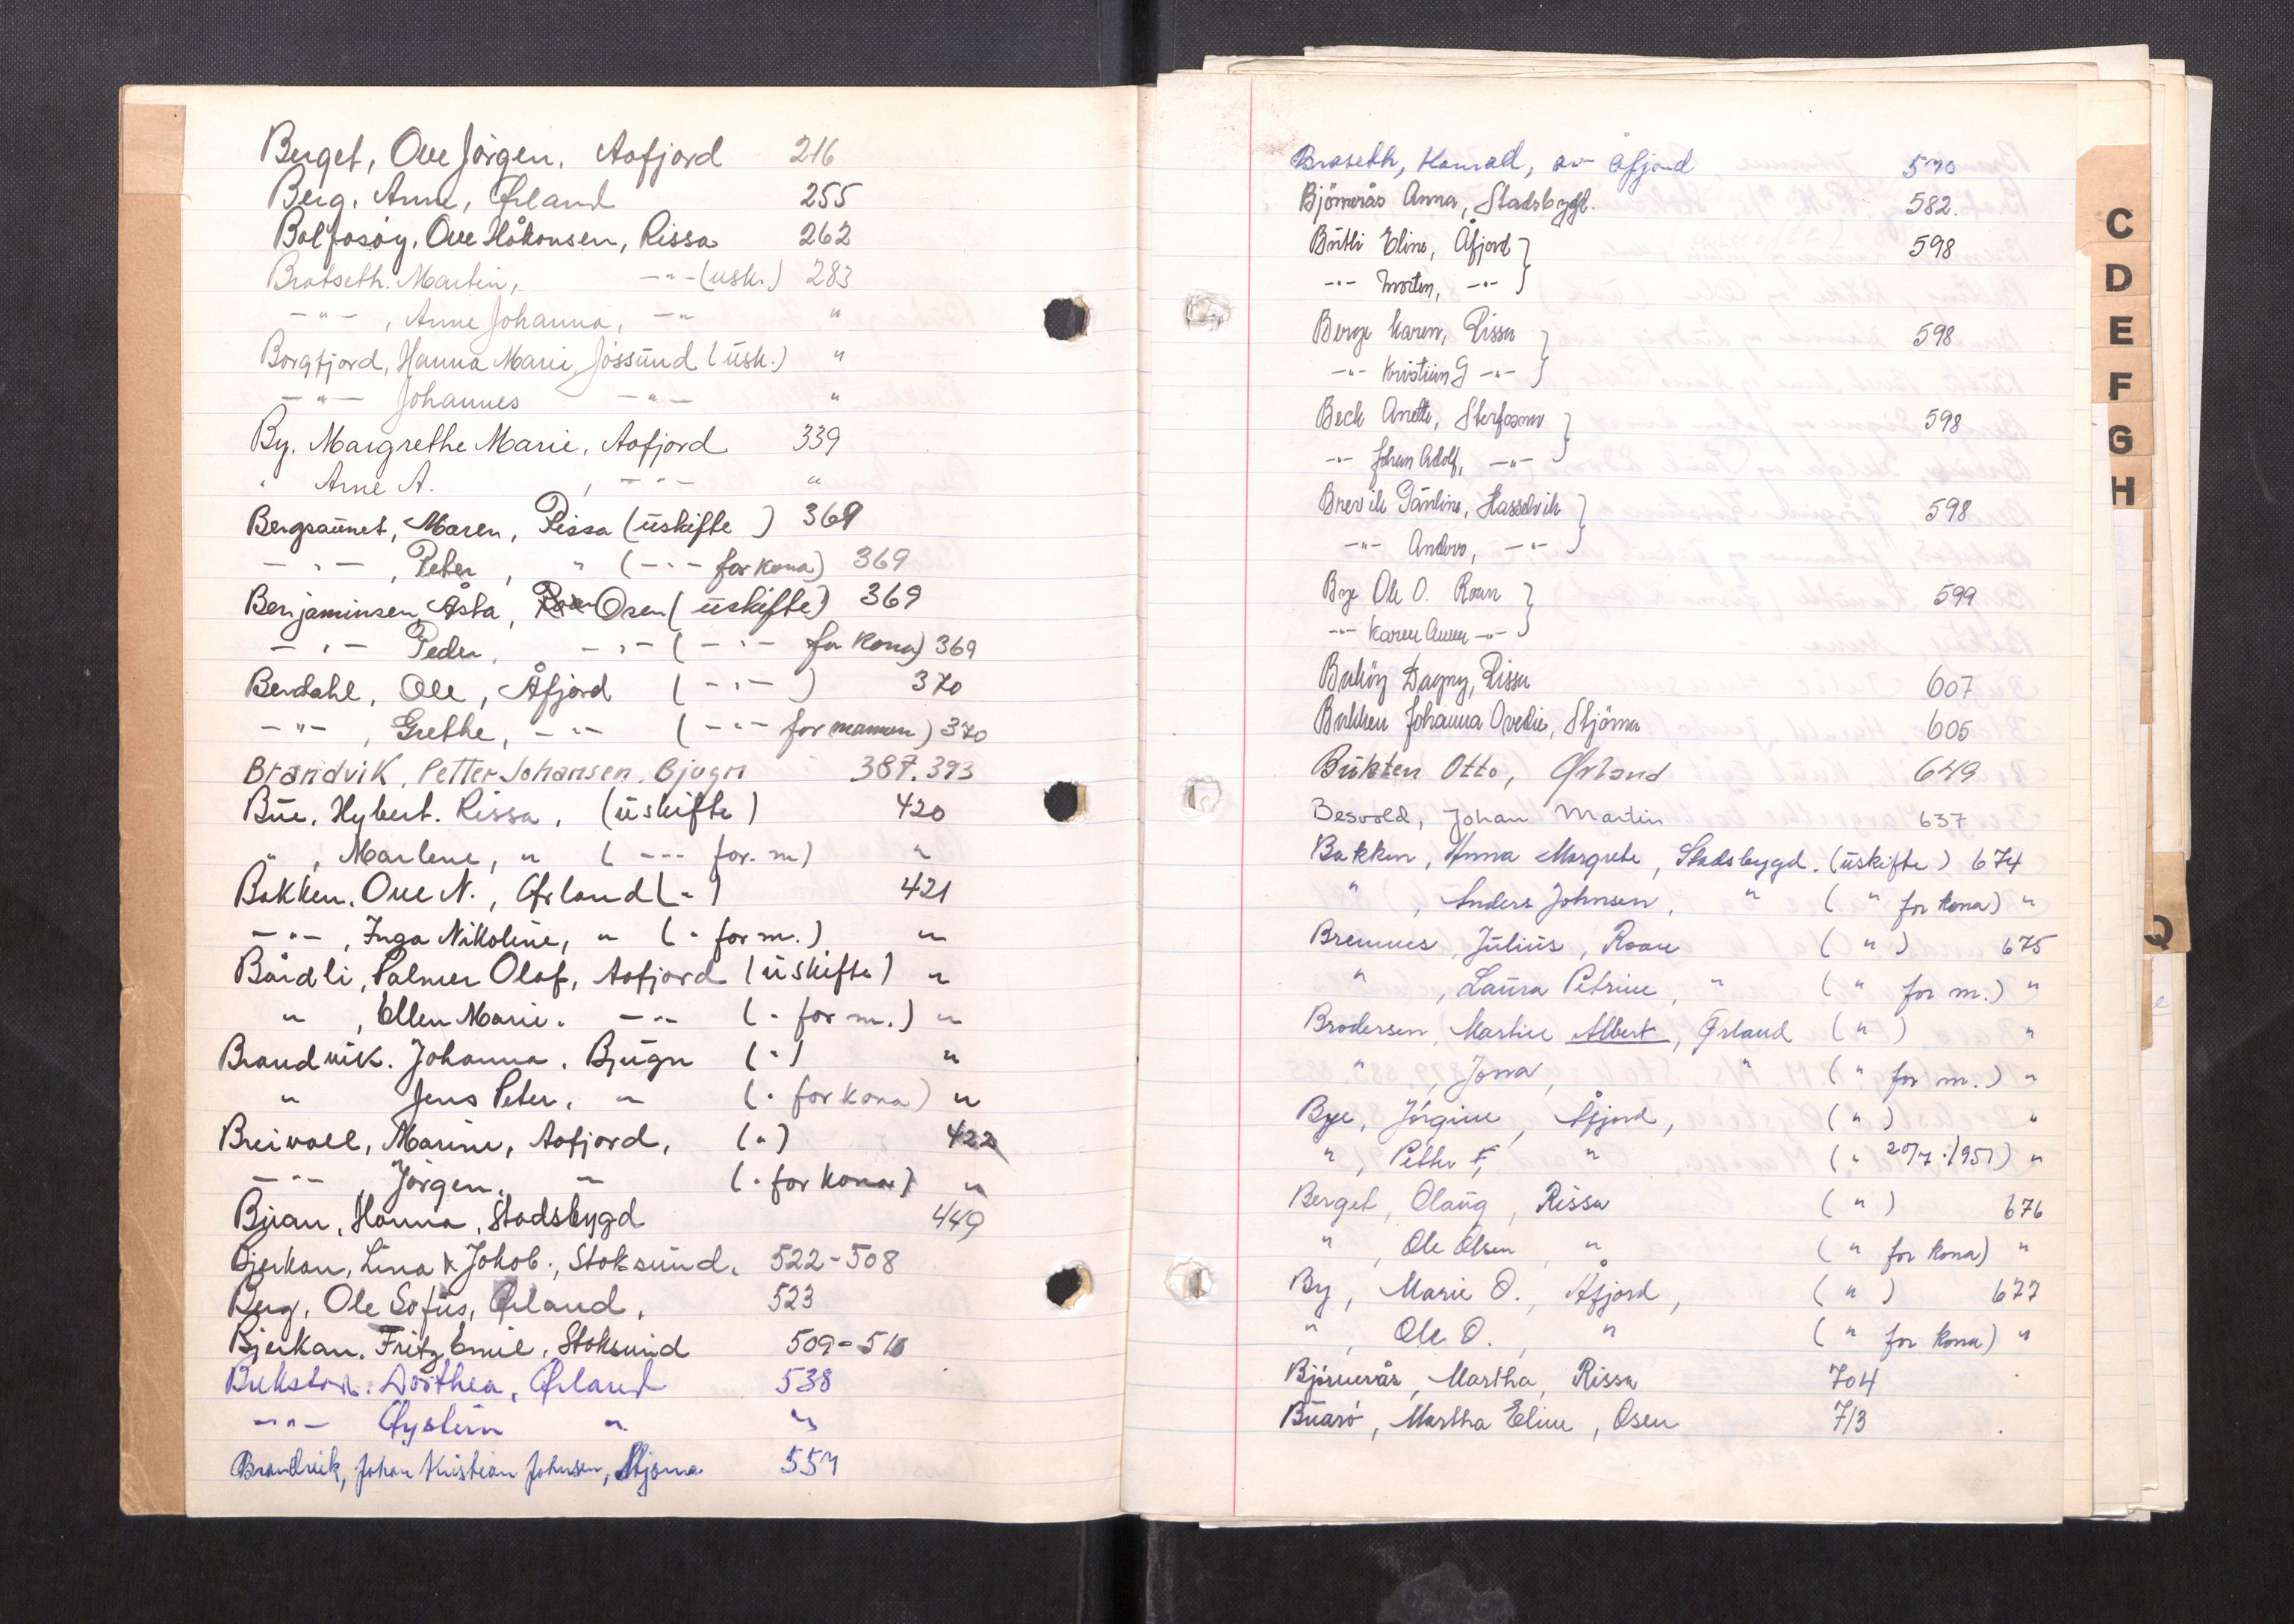 Berget, Ove Jörgen, Aafjord 216
Berg, Anne, Ørland 255
Balfosøy, Ove Håkonsen, Rissa 262
Bratseth. Martin, -"- (usk.) 283
-"-, Anne Johanna, -"- "
Borgfjord, Hanna Marie, Jøssund (usk.) "
-"- Johannes -"- "
By. Margrethe Marie, Aafjord 339
" Arne A. , -"- "
Bergsaunet, Maren, Rissa (uskifte ) 369
-"-, Peter, " (-"- for kona) 369
Benjaminsen, Åsta, Osen (uskifte) 369
-"- Peder, -"- (-"- for kona) 369
Berdahl, Ole, Åfjord (-"-) 370
-"-, Grethe, -"- (-"- for mannen) 370
Brandvik, Petter Johansen, Bjugn 387.393
Bue, Hybert. Rissa, (uskifte) 420
", Marlene, " (--- for m) "
Bakken. Ove N., Ørland (") 421
-"-, Inga Nikoline, " (" for m.) "
Bårdli, Palmer Olaf, Aafjord (uskifte) "
", Ellen Marie. -"- (" for m.) "
Brandvik. Johanna. Bjugn (") "
" Jens Peter. " (" for kona) "
Breivoll, Marine, Aafjord, (") 422
-"-, Jørgen, " (" for kona) "
Bjran, Hanna, Stadsbygd 449
Bjerkan, Lina & Jakob., Stoksund. 522-508
Berg, Ole Sofus, Ørland, 523
Bjerkan. Fritz Emil, Stoksund 509-510
Dorthea, Ørland 538
-"- Øystein " "
Brandvik, Johan Kristian Johnsen, Stjørna 557
Braseth, Konrad, av Åfjord 570
Björnerås Anna, Stadsbygd. 582.
Butli Eline, Åfjord } 598
-"- Morten, -"- }
Berge Karen, Rissa } 598
-"- Kristian G -"- }
Beck Anette, } 598
-"- Johan Adolf, -"- }
Brevik Pauline, Hasselvik } 598
-"- Andreas, -"- }
Bye Ole O. Roan } 599
-"- Karen Anna -"- }
Dagny, Rissa 607
Bakken Johanna Ovedie, Stjörna 605
Bukten Otto, Ørland 649
Besvold, Johan Martin 637
Bakken, Anna Margrete, Stadsbygd. (uskifte) 674
", Anders Johnsen, " (" for kona) "
Bremnes, Julius, Roan (") 675
", Laura Petrine, " (" for m.) "
Brodersen, Martin Albert, Ørland (") "
", Jona, " (" for m.) "
Bye, Jørgine, Åfjord, (") "
", Petter F, " (" 20/7.1951) "
Berget, Olaug, Rissa (") 676
", Ole Olsen, " (" for kona) "
By, Marie O., Åfjord, (") 677
", Ole O. , " (" for kona) "
Bjørnerås, Martha, Rissa 704
Buarø, Martha Eline, Osen 713
C
D
E
F
G
H
Q